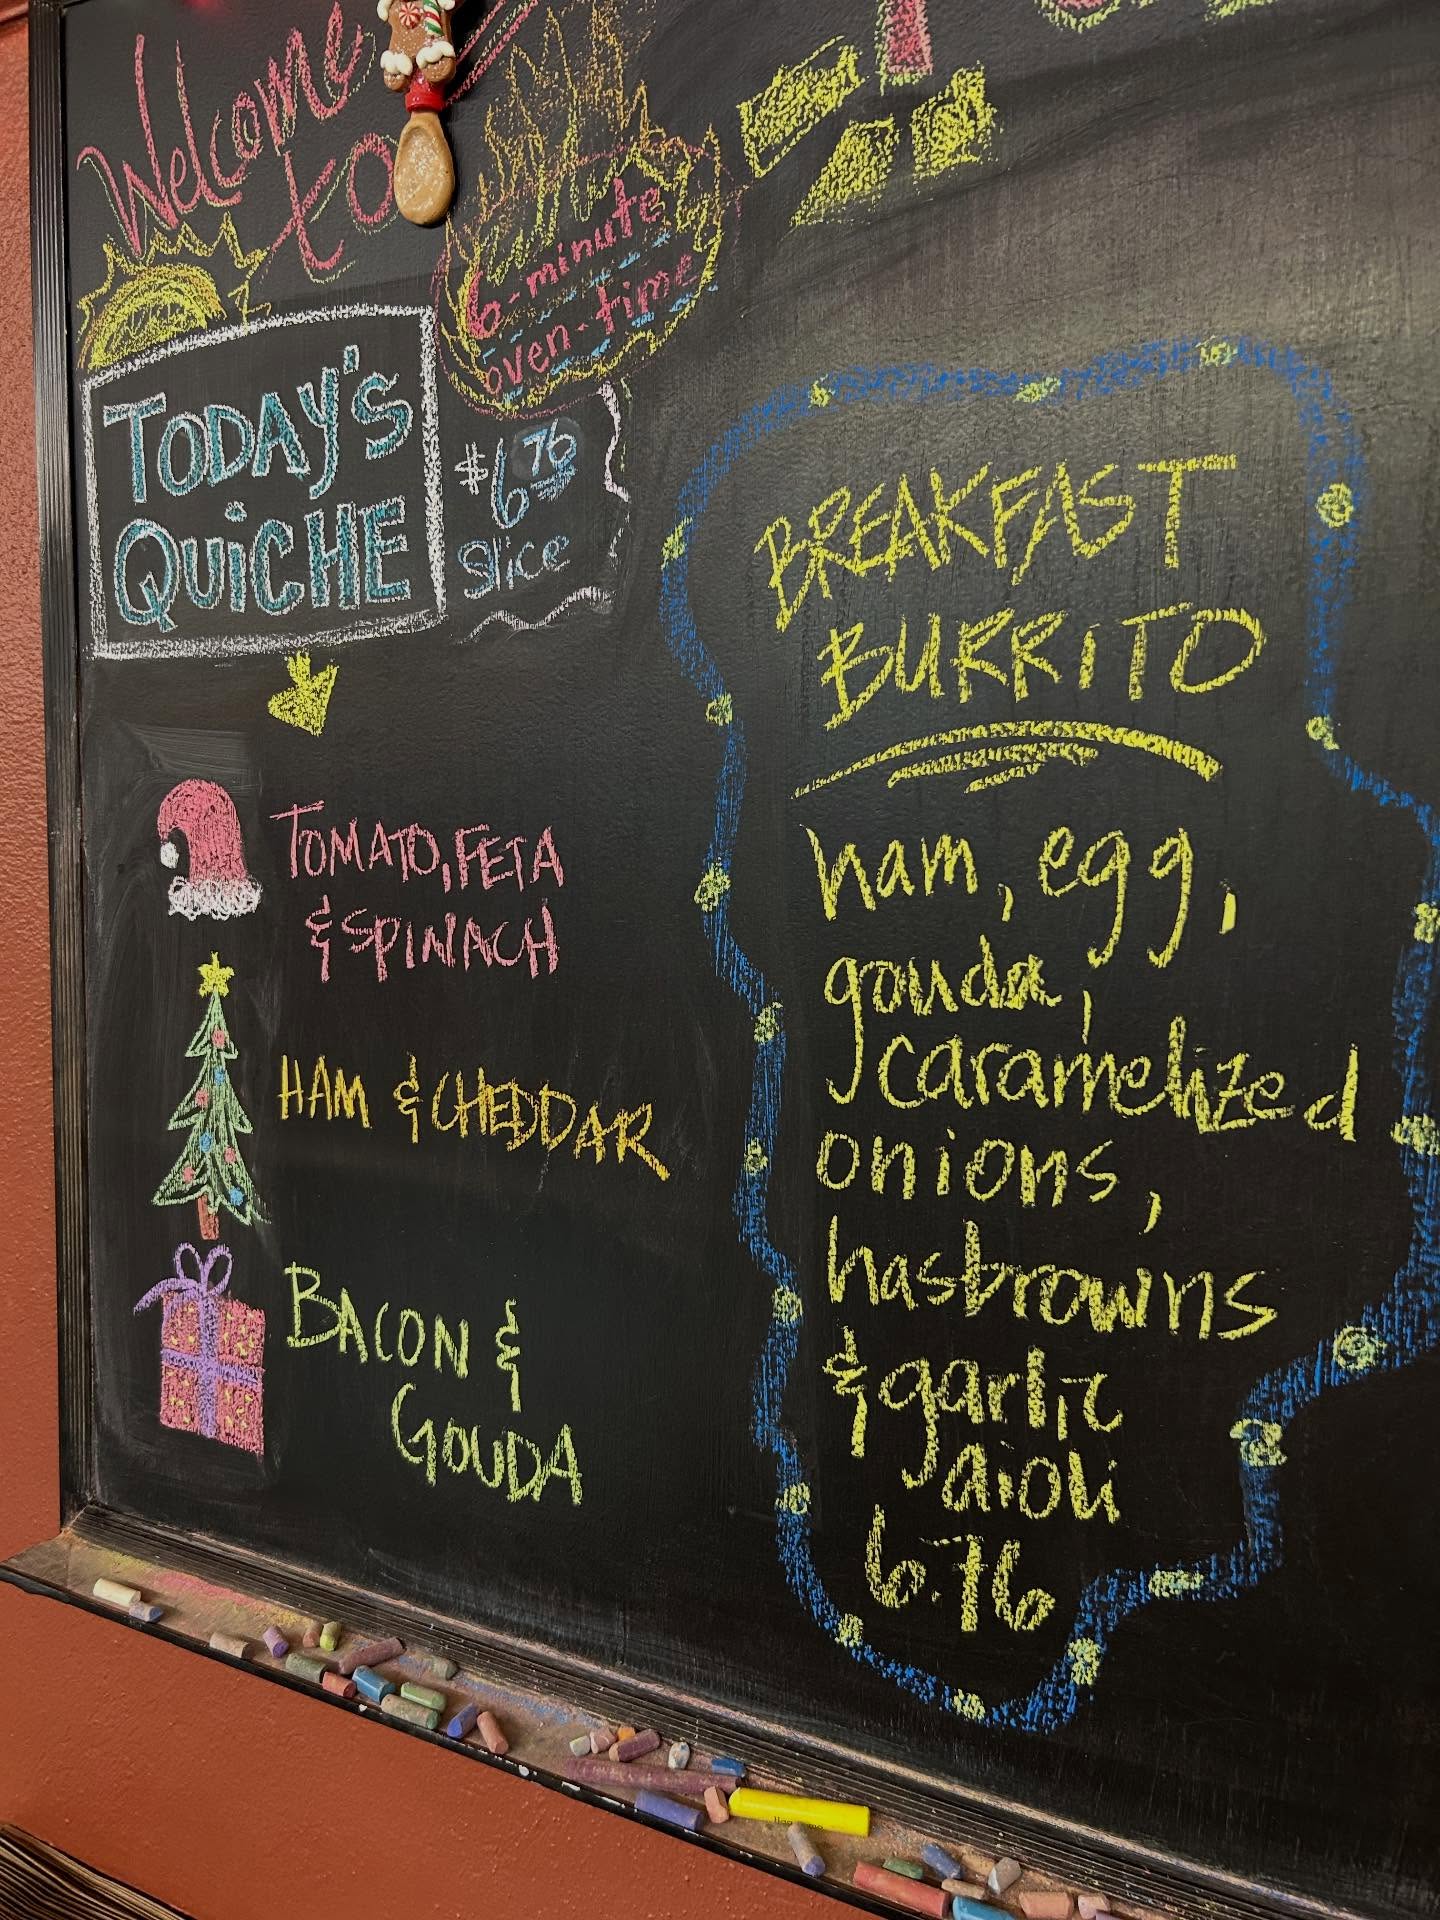 Welcome
to
6-minute
oven-time
TODAY'S
QUiCHE
$6.76
Slice
TOMATO, FETA
& SPINACH
HAM & CHEDDAR
BACON &
GOUDA
BREAKFAST
BURRiTO
ham, egg,
gouda,
caramelized
onions,
hasbrowns
& garlic
aioli
6.76